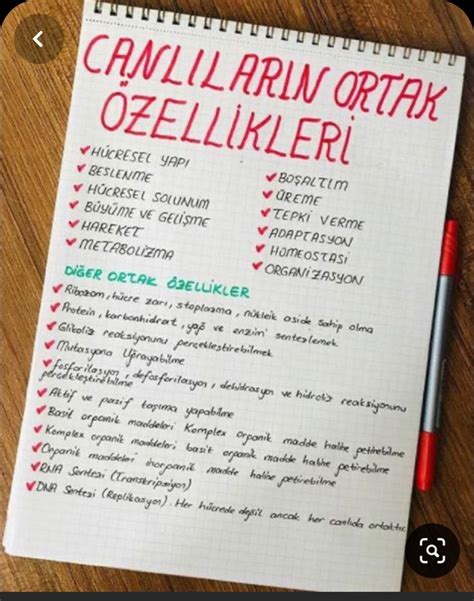 CANLILARIN ORTAK
ÖZELLİKLERİ
✓HÜCRESEL YAPI
✓BESLENME
✓HÜCRESEL SOLUNUM
✓BÜYÜME VE GELİŞME
✓HAREKET
✓METABOLİZMA
✓BOŞALTIM
✓ÜREME
✓TEPKİ VERME
✓ADAPTASYON
✓HOMEOSTASİ
✓ORGANİZASYON
DİĞER ORTAK ÖZELLİKLER
✓Ribozom, hücre zarı, stoplazma, nükleik aside sahip olma
✓Protein, karbonhidrat, yağ ve enzim sentezlemek
✓Glikoliz reaksiyonunu gerçekleştirebilmek
✓Mutasyona Uğrayabilme
✓fosforilasyon, defosforilasyon, dehidrasyon ve hidroliz reaksiyonunu
gerçekleştirebilme
✓Aktif ve pasif taşıma yapabilme
✓Basit organik maddeleri Kompleks organik madde haline getirebilme
✓Kompleks organik maddeleri basit organik madde haline getirebilme
✓Organik maddeleri inorganik madde haline getirebilme
✓RNA Sentezi (Transkripsiyon)
✓DNA Sentezi (Replikasyon). Her hücrede değil ancak her canlıda ortaktır.